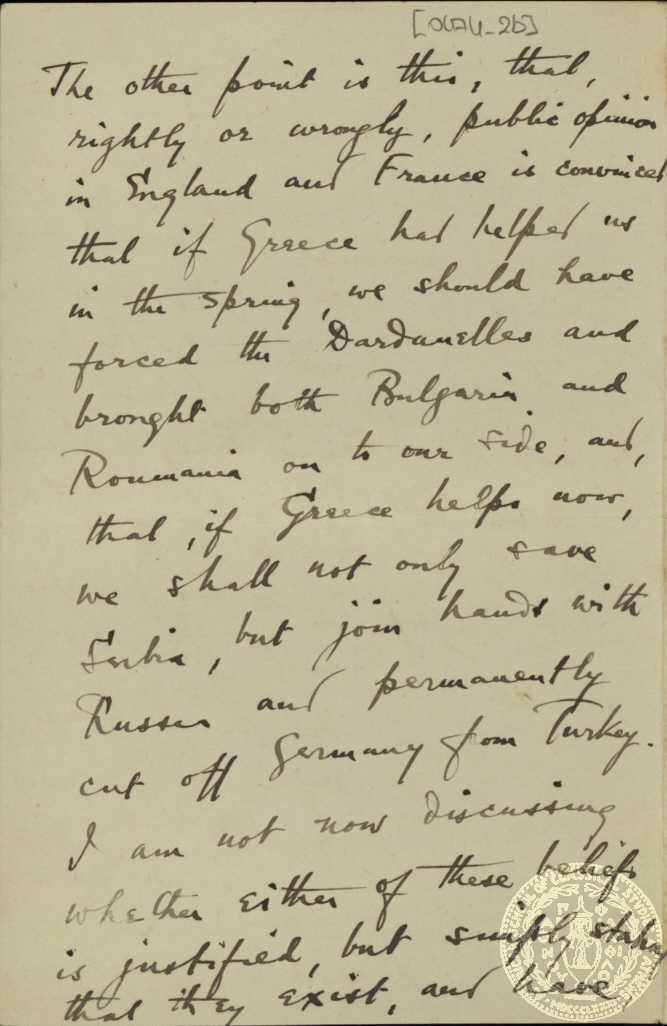 The other point is this, that,
rightly or wrongly, public opinion
in England and France is convinced
that if Greece had helped us
in the spring, we should have
forced the Dardanelles and
brought both Bulgaria and
Roumania on to our side, and,
that, if Greece helps now,
we shall not only save
Serbia, but join hands with
Russia and permanently
cut off Germany from Turkey.
I am not now discussing
whether either of these beliefs
is justified, but simply stating
that they exist, and have